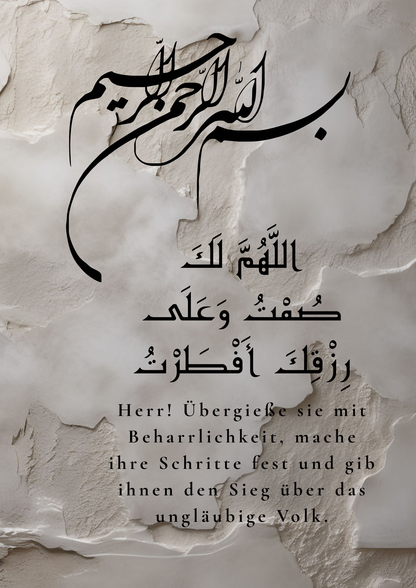 بسم الله الرحمن الرحيم
اللَّهُمَّ لَكَ
صُمْتُ وَعَلَى
رِزْقِكَ أَفْطَرْتُ
Herr! Übergieße sie mit
Beharrlichkeit, mache
ihre Schritte fest und gib
ihnen den Sieg über das
ungläubige Volk.